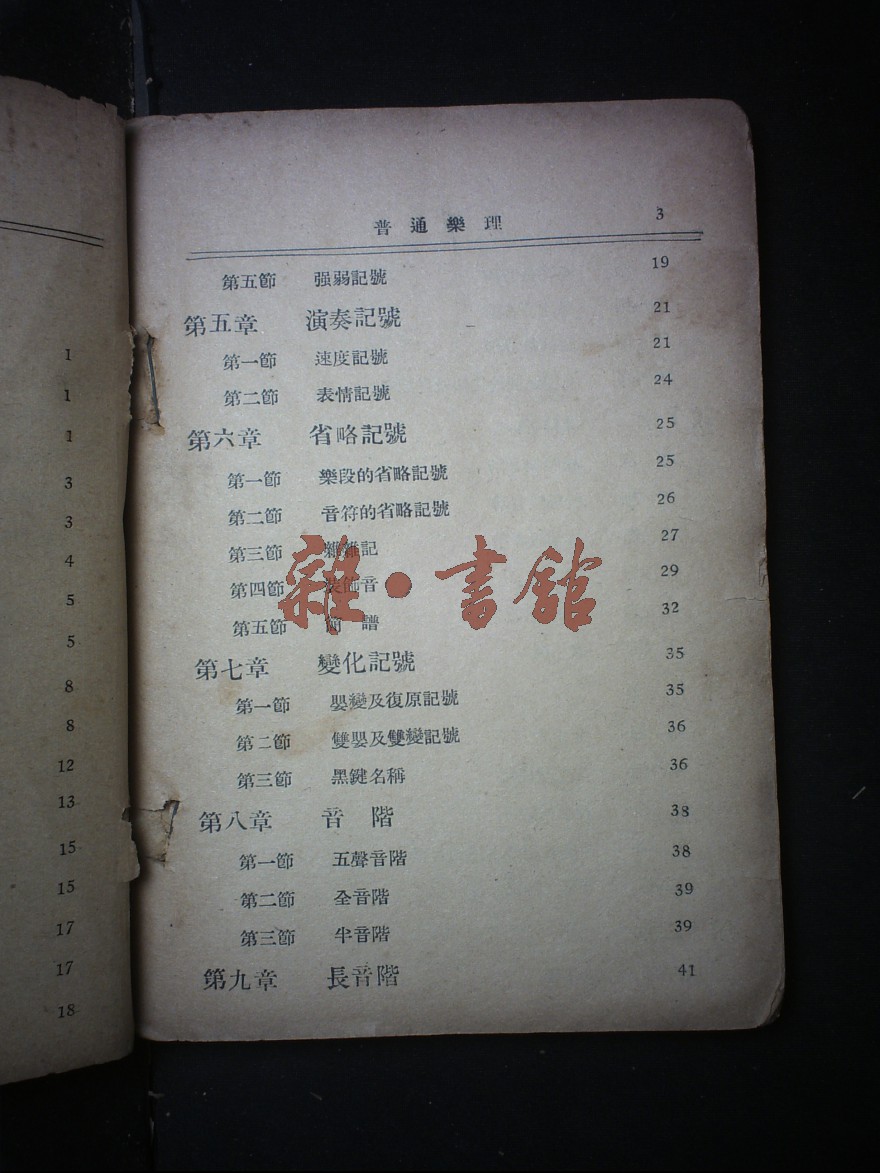 1
1
1
3
3
4
5
5
8
8
12
13
15
15
17
17
18
普通樂理 3
第五節 强弱記號 19
第五章 演奏記號 21
第一節 速度記號 21
第二節 表情記號 24
第六章 省略記號 25
第一節 樂段的省略記號 25
第二節 音符的省略記號 26
第三節 雜記 27
第四節 裝飾音 29
第五節 簡譜 32
第七章 變化記號 35
第一節 嬰變及復原記號 35
第二節 雙嬰及雙變記號 36
第三節 黑鍵名稱 36
第八章 音階 38
第一節 五聲音階 38
第二節 全音階 39
第三節 半音階 39
第九章 長音階 41
雜·書館